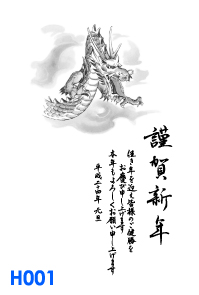 謹賀新年
佳き年を迎え皆様のご健勝を
お慶び申し上げます
本年もよろしくお願い申し上げます
平成二十四年 元旦
H001